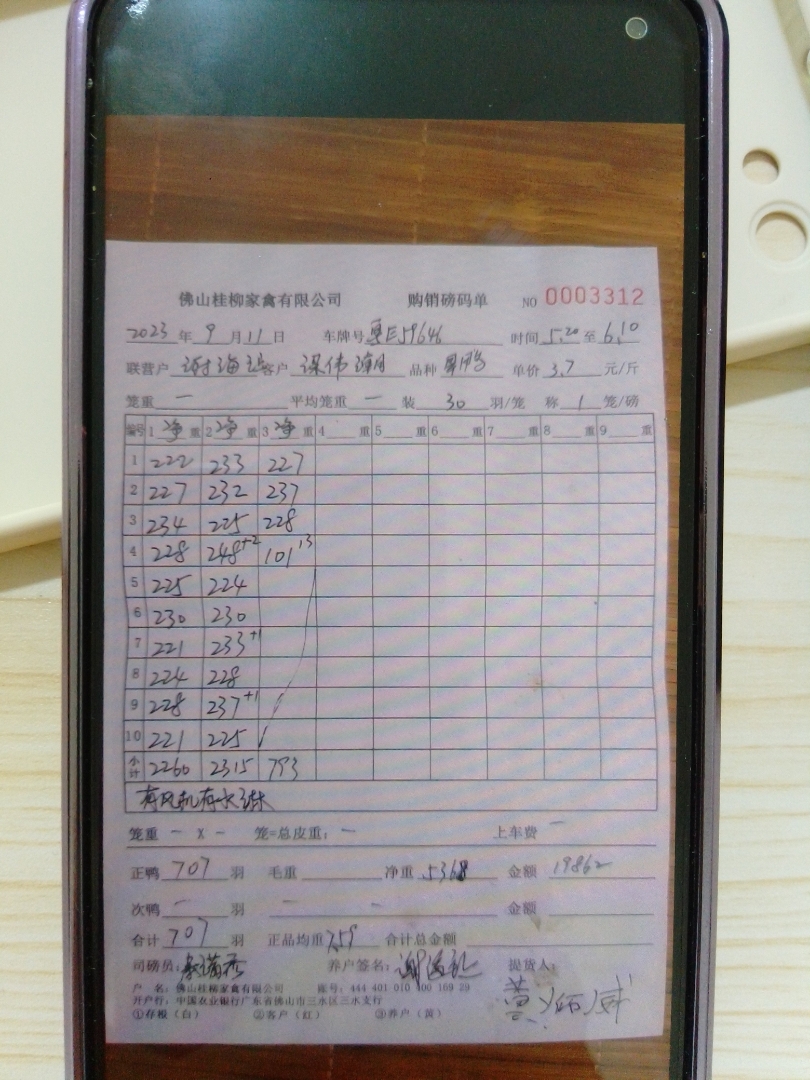 佛山桂柳家禽有限公司 购销磅码单 NO 0003312
2023 年 9 月 11 日 车牌号 粤E59646 时间 5.20 至 6.10
联营户 谢海 客户 梁伟潮 品种 单价 3.7 元/斤
笼重 一 平均笼重 一 装 30 羽/笼 称 1 笼/磅
编号 1 净 重 2 净 重 3 净 重 4 重 5 重 6 重 7 重 8 重 9 重
1 222 233 227
2 227 232 237
3 234 225 228
4 228 248+2 101 13
5 225 224
6 230 230
7 221 233+1
8 224 228
9 228 237+1
10 221 225
小计 2260 2315 793
有风机有水淋
笼重 一 X 一 笼=总皮重: 一 上车费 一
正鸭 707 羽 毛重 净重 5368 金额 19862
次鸭 一 羽 一 一 金额
合计 707 羽 正品均重 7.59 合计总金额
司磅员: 养户签名: 提货人:
户 名: 佛山桂柳家禽有限公司 账号: 444 401 010 400 169 29
开户行: 中国农业银行广东省佛山市三水区三水支行
①存根(白) ②客户(红) ③养户(黄)